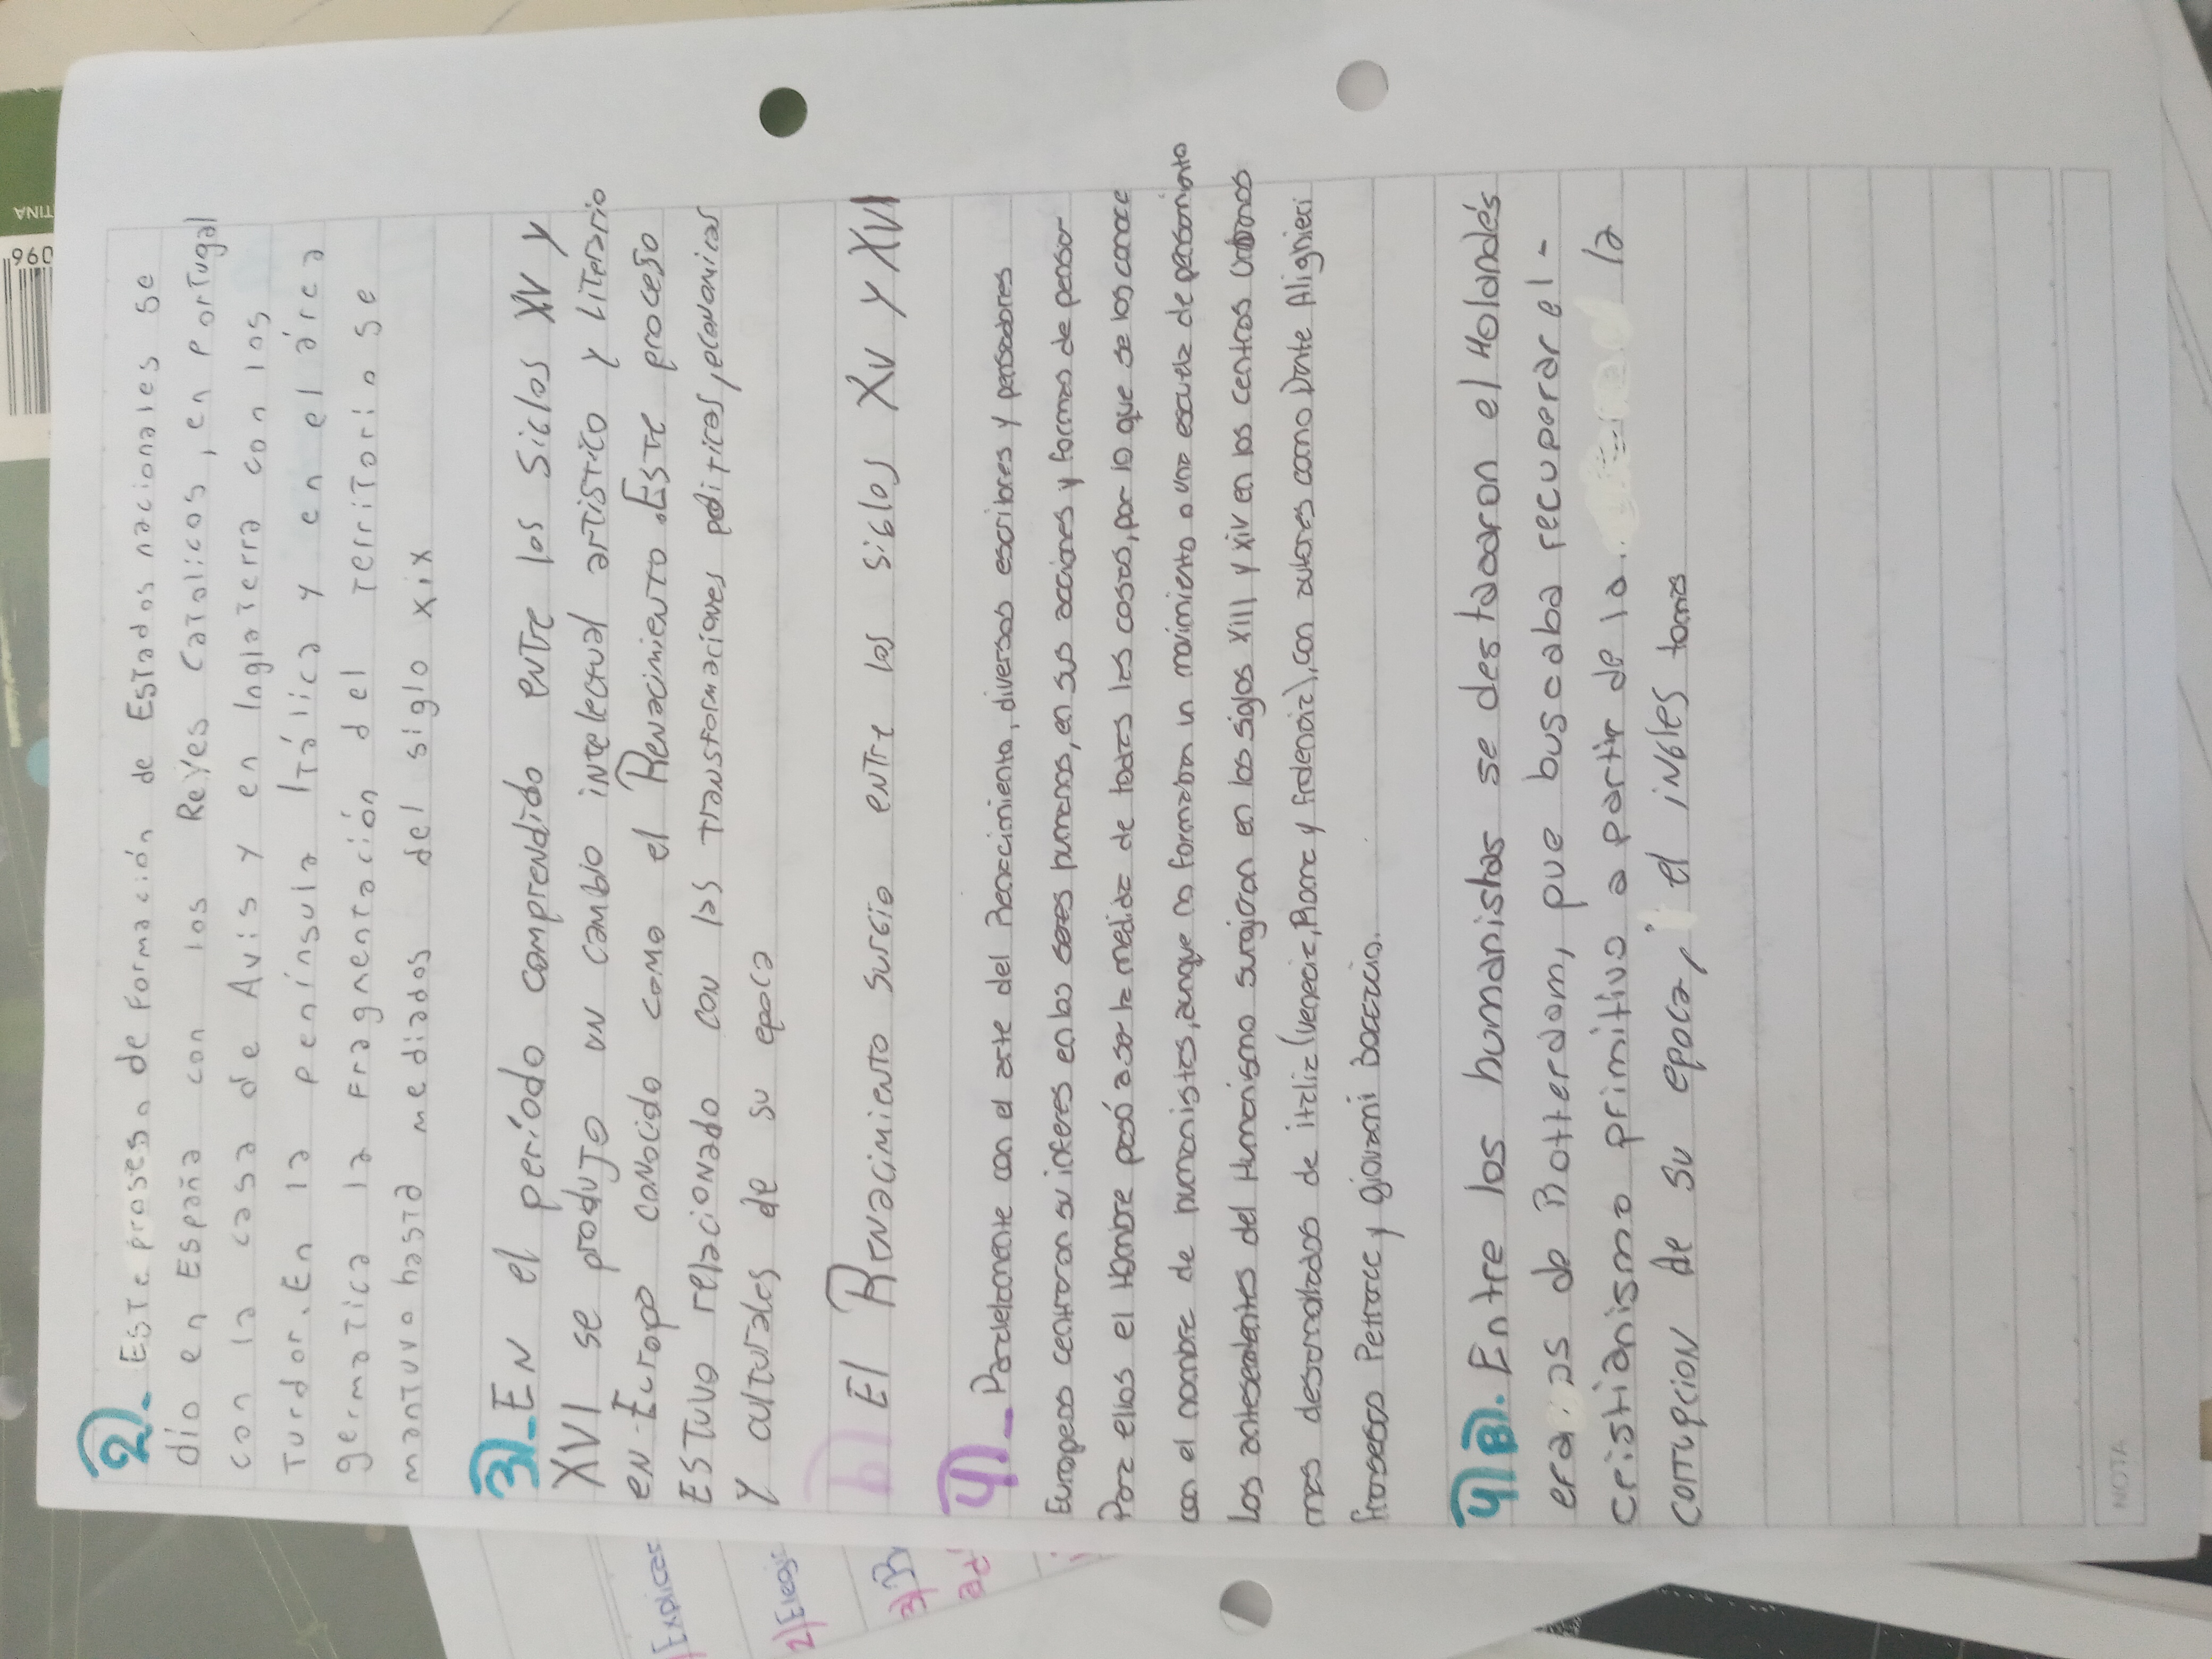 2)_ Este proseso de Formación de Estados nacionales se
dio en España con los Reyes Catolicos, en Portugal
con la casa de Avis y en Inglaterra con los
Turdor. En la península Itálica y en el área
germatica la Fragmentación del territorio se
mantuvo hasta mediados del siglo xix
3)_ En el período comprendido entre los Siglos XV y
XVI se produjo un cambio intelectual artístico y literario
en Europa conocido como el Renacimiento. Este proceso
Estuvo relacionado con las transformaciones politicas, economicas
y culturales de su epoca
b) El Renacimiento surgio entre los siglos XV y XVI
4)_ Paralelamente con el arte del Renacimiento, diversos escribores y pensadores
Europeos centraron su interes en los seres humanos, en sus acciones y formas de pensar
Para ellos el Hombre pasó a ser la medida de todas las cosas, por lo que se los conoce
con el nombre de humanistas, aunque no formaban un movimiento o una escuela de pensamiento
Los antesedentes del Humanismo surgieron en los siglos XIII y XIV en los centros urbanos
mas desarrollados de italia (venecia, Roma y frolencia), con autores como Dante Alighieri
fransesco Petrarca y giovanni Boccaccio.
4) B). Entre los humanistas se destacaron el Holandés
eras de Rotterdam, que buscaba recuperar el -
cristianismo primitivo a partir de la la
corrupcion de su epoca, el ingles tomas
NOTA
096
TINA
Explicar
2) Elegir
3)